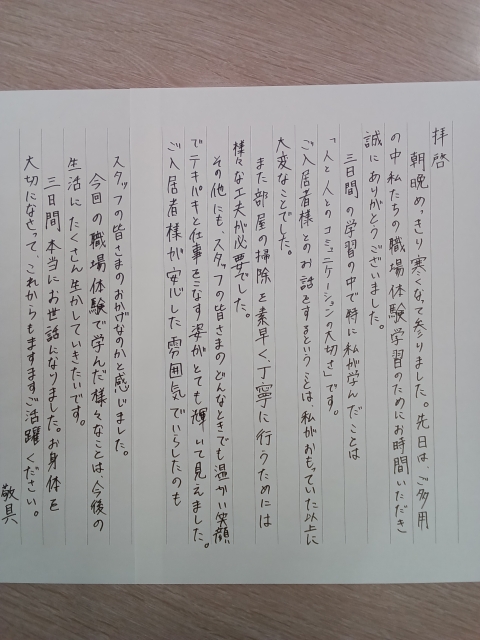 拝啓
朝晩めっきり寒くなって参りました。先日は、ご多用
の中私たちの職場体験学習のためにお時間いただき
誠にありがとうございました。
三日間の学習の中で特に私が学んだことは
「人と人とのコミュニケーションの大切さ」です。
ご入居者様とのお話をするということは私がおもっていた以上に
大変なことでした。
また部屋の掃除を素早く、丁寧に行うためには
様々な工夫が必要でした。
その他にも、スタッフの皆さまのどんなときでも温かい笑顔
でテキパキと仕事をこなす姿がとても輝いて見えました。
ご入居者様が安心した雰囲気でいらしたのも
スタッフの皆さまのおかげなのかと感じました。
今回の職場体験で学んだ様々なことは、今後の
生活にたくさん生かしていきたいです。
三日間本当にお世話になりました。お身体を
大切になさって、これからもますますご活躍ください。
敬具